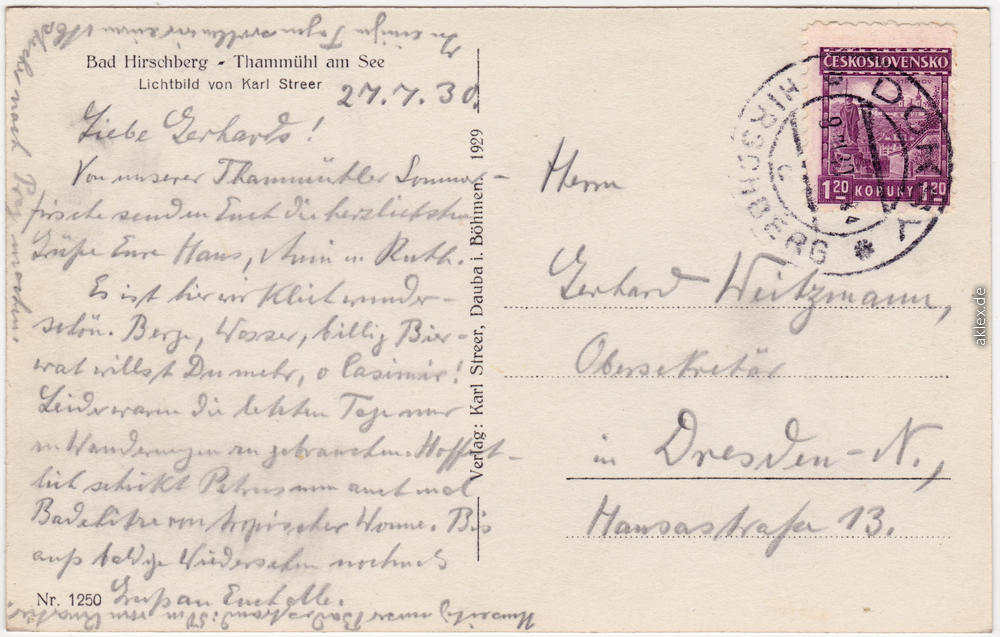 Bad Hirschberg - Thammühl am See
Lichtbild von Karl Streer
27.7.30.
Liebe Gerhards!
Von unserer Thammühler Sommer-
frische senden Euch die herzlichsten
Grüße Eure Hans, Änni u. Ruth.
Es ist hier wirklich wunder-
schön. Berge, Wasser, billig Bier -
wat willst Du mehr, o Casimir!
Leider waren die letzten Tage nur
zu Wanderungen zu gebrauchen. Hoffent-
lich schickt Petrus nun auch mal
Badehitze von tropischer Wonne. Bis
aufs baldige Wiedersehen nochmals
Gruß an Euch alle.
Nr. 1250
In einigen Tagen wollen wir einen
nach
Verlag: Karl Streer, Dauba i. Böhmen. 1929
ČESKOSLOVENSKO
1.20 KORUNY 1.20
DOKSY
HIRSCHBERG
Herrn
Gerhard Weitzmann,
Obersekretär
in Dresden-N.,
Hansastraße 13.
aklex.de